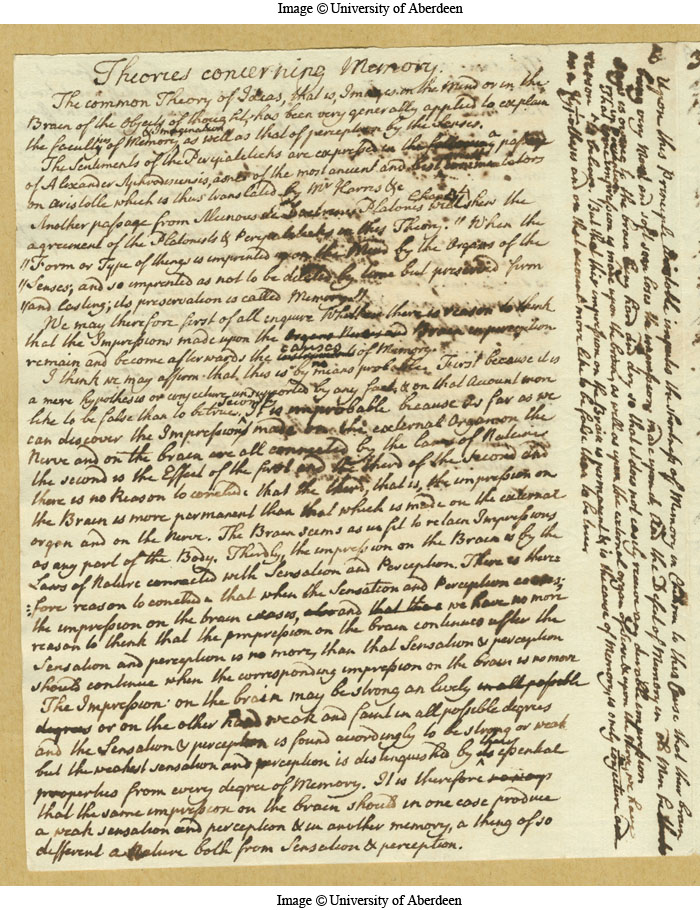 Image © University of Aberdeen
Theories concerning Memory.
The common Theory of Ideas, that is, Images in the Mind or in the
Brain of the Objects of thought, has been very generally applied to explain
the faculties of Memory & Imagination as well as that of perception by the Senses.
The Sentiments of the Peripateticks are expressed in the following a passage
of Alexander Aphrodisiensis, as one of the most ancient and best commentators
on Aristotle which is thus translated by Mr Harris &c
Another passage from Alcinous de Doctrina Platonis Chap 4 will shew the
agreement of the Platonists & Peripateticks in this Theory. "When the
"Form or Type of things is imprinted upon the Mind by the Organs of the
"Senses, and so imprinted as not to be deleted by time but preserved firm
"and lasting; its preservation is called Memory."
We may therefore first of all enquire Whether there is reason to think
that the Impressions made upon the Organs Nerves and Brain in perception
remain and become afterwards the causes of Memory.
I think we may affirm that this is by no means probable. First because it is
a mere hypothesis or conjecture unsupported by any fact, & on that Account more
like to be false than to be true. Secondly It is improbable because as far as we
can discover the Impressions made on the external Organ on the
Nerve and on the brain are all connected by the laws of Nature
the second is the Effect of the first and the third of the second and
there is no Reason to conclude that the third, that is, the impression on
the Brain is more permanent than that which is made on the external
organ and on the Nerve. The Brain seems as unfit to retain Impressions
as any part of the Body. Thirdly, the impression on the Brain is by the
Laws of Nature connected with Sensation and Perception. There is there
:fore reason to conclude that when the Sensation and Perception ceases,
the impression on the brain ceases, and that we have no more
reason to think that the impression on the brain continues after the
Sensation and perception is no more, than that Sensation & perception
should continue when the corresponding impression on the brain is no more
The Impression on the brain may be strong an lively in all possible
degrees or on the other hand weak and faint in all possible degrees
and the Sensation & perception is found accordingly to be strong or weak
but the weakest sensation and perception is distinguished by their essential
properties from every degree of Memory. It is therefore
that the same impression on the brain should in one case produce
a weak sensation and perception & in another memory, a thing of so
different a Nature both from Sensation & perception.
Upon this principle Aristotle imputes the shortness of Memory in Children to this Cause that their brain
being very moist and soft soon loses the impressions made upon it. And the Defect of Memory in Old Men he
is owing to the brain being hard and dry so that it does not easily receive any durable impression
That some impression is made upon the brain as well as upon the external organ of Sense & upon the Nerve we have
reason to believe. But that this impression on the Brain is permanent & is the cause of Memory, is only conjecture and
an hypothesis and on that account more like to be false than to be true
Image © University of Aberdeen